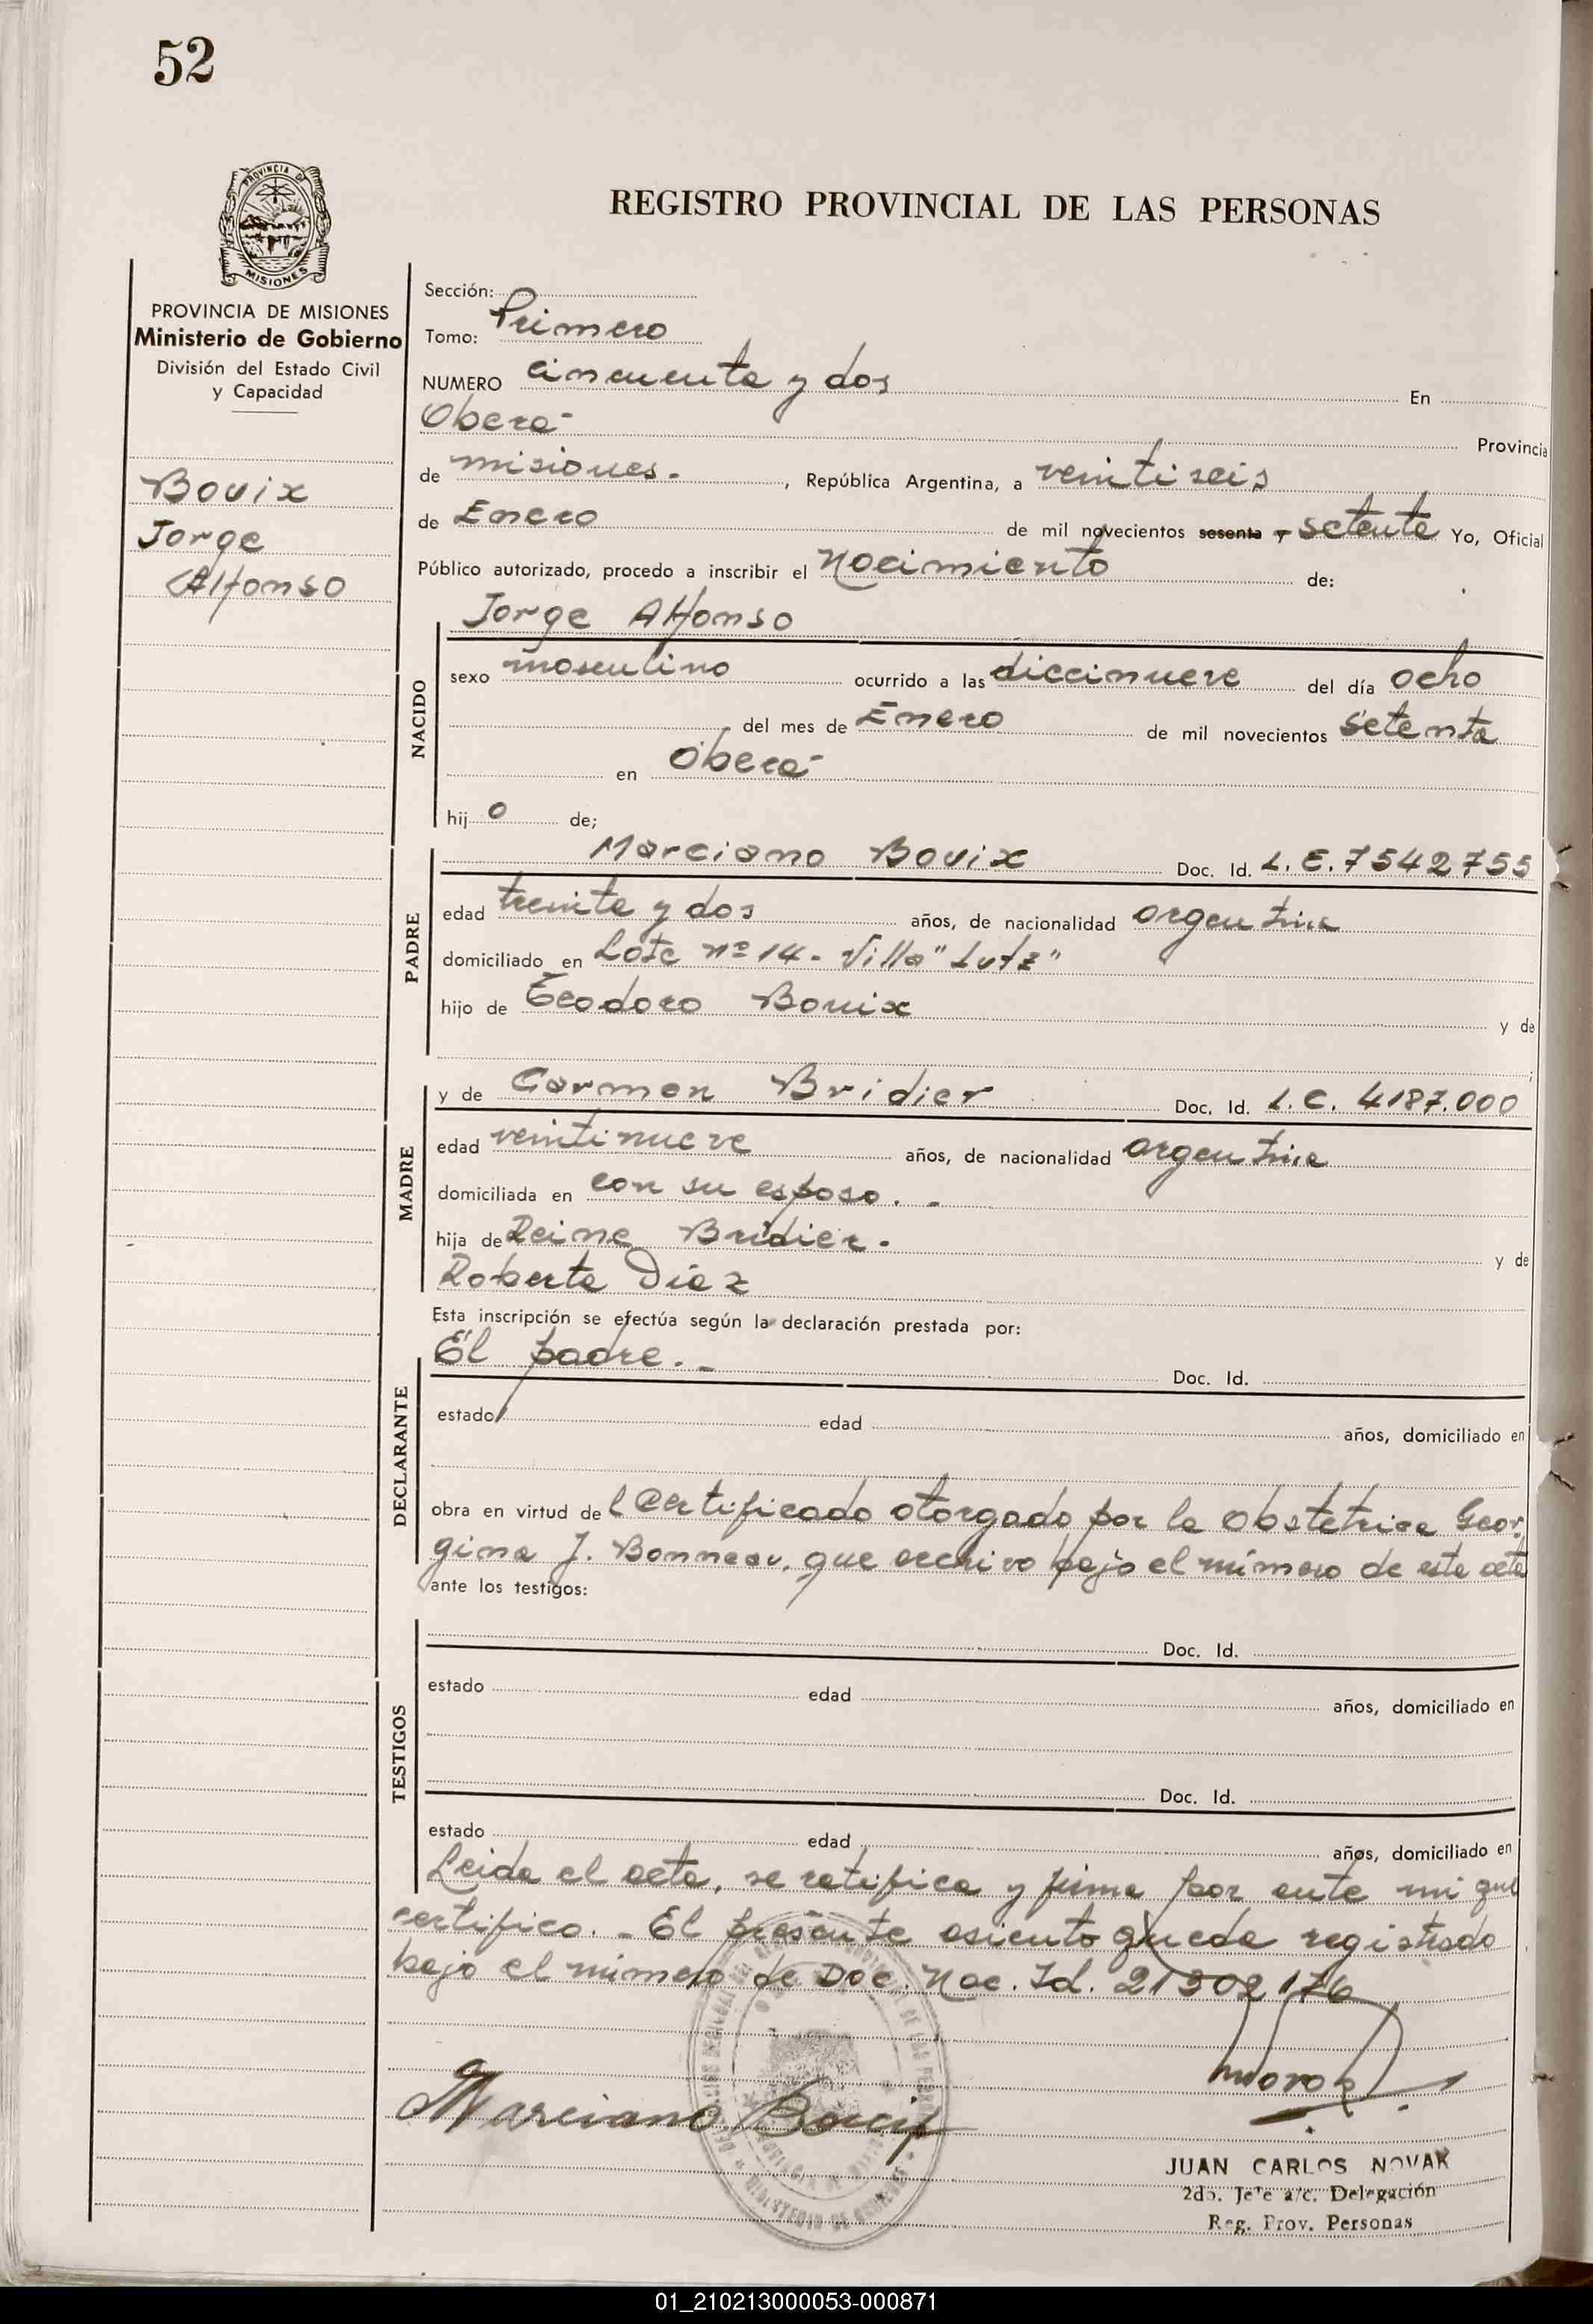 52
PROVINCIA DE
MISIONES
REGISTRO PROVINCIAL DE LAS PERSONAS
PROVINCIA DE MISIONES
Ministerio de Gobierno
División del Estado Civil
y Capacidad
Bouix
Jorge
Alfonso
Sección:
Tomo: Primero
NUMERO cincuenta y dos En
Oberá Provincia
de misiones. , República Argentina, a veintiseis
de Enero de mil novecientos sesenta y setenta Yo, Oficial
Público autorizado, procedo a inscribir el Nacimiento de:
NACIDO
Jorge Alfonso
sexo masculino ocurrido a las diecinueve del día ocho
del mes de Enero de mil novecientos setenta
en Oberá
hij o de;
PADRE
Marciano Bouix Doc. Id. L. E. 7542755
edad treinta y dos años, de nacionalidad argentina
domiciliado en Lote nº 14 - Villa "Lutz"
hijo de Teodoro Bouix y de
MADRE
y de Carmen Bridier Doc. Id. L. C. 4187.000
edad veintinueve años, de nacionalidad argentina
domiciliada en con su esposo. -
hija de Reine Bridier. y de
Roberta Diaz
Esta inscripción se efectúa según la declaración prestada por:
DECLARANTE
El padre. - Doc. Id.
estado edad años, domiciliado en
obra en virtud de l Certificado otorgado por la Obstetrica Geor-
gina J. Bonneau, que archivo bajo el número de este acta
ante los testigos:
TESTIGOS
Doc. Id.
estado edad años, domiciliado en
Doc. Id.
estado edad años, domiciliado en
Leida el acta, se ratifica y firma por ante mi que
certifico. - El presente asiento queda registrado
bajo el número de Doc. Nac. Id. 21302176
Marciano Bouix
JUAN CARLOS NOVAK
2do. Jefe a/c. Delegación
Reg. Prov. Personas
01_210213000053-000871